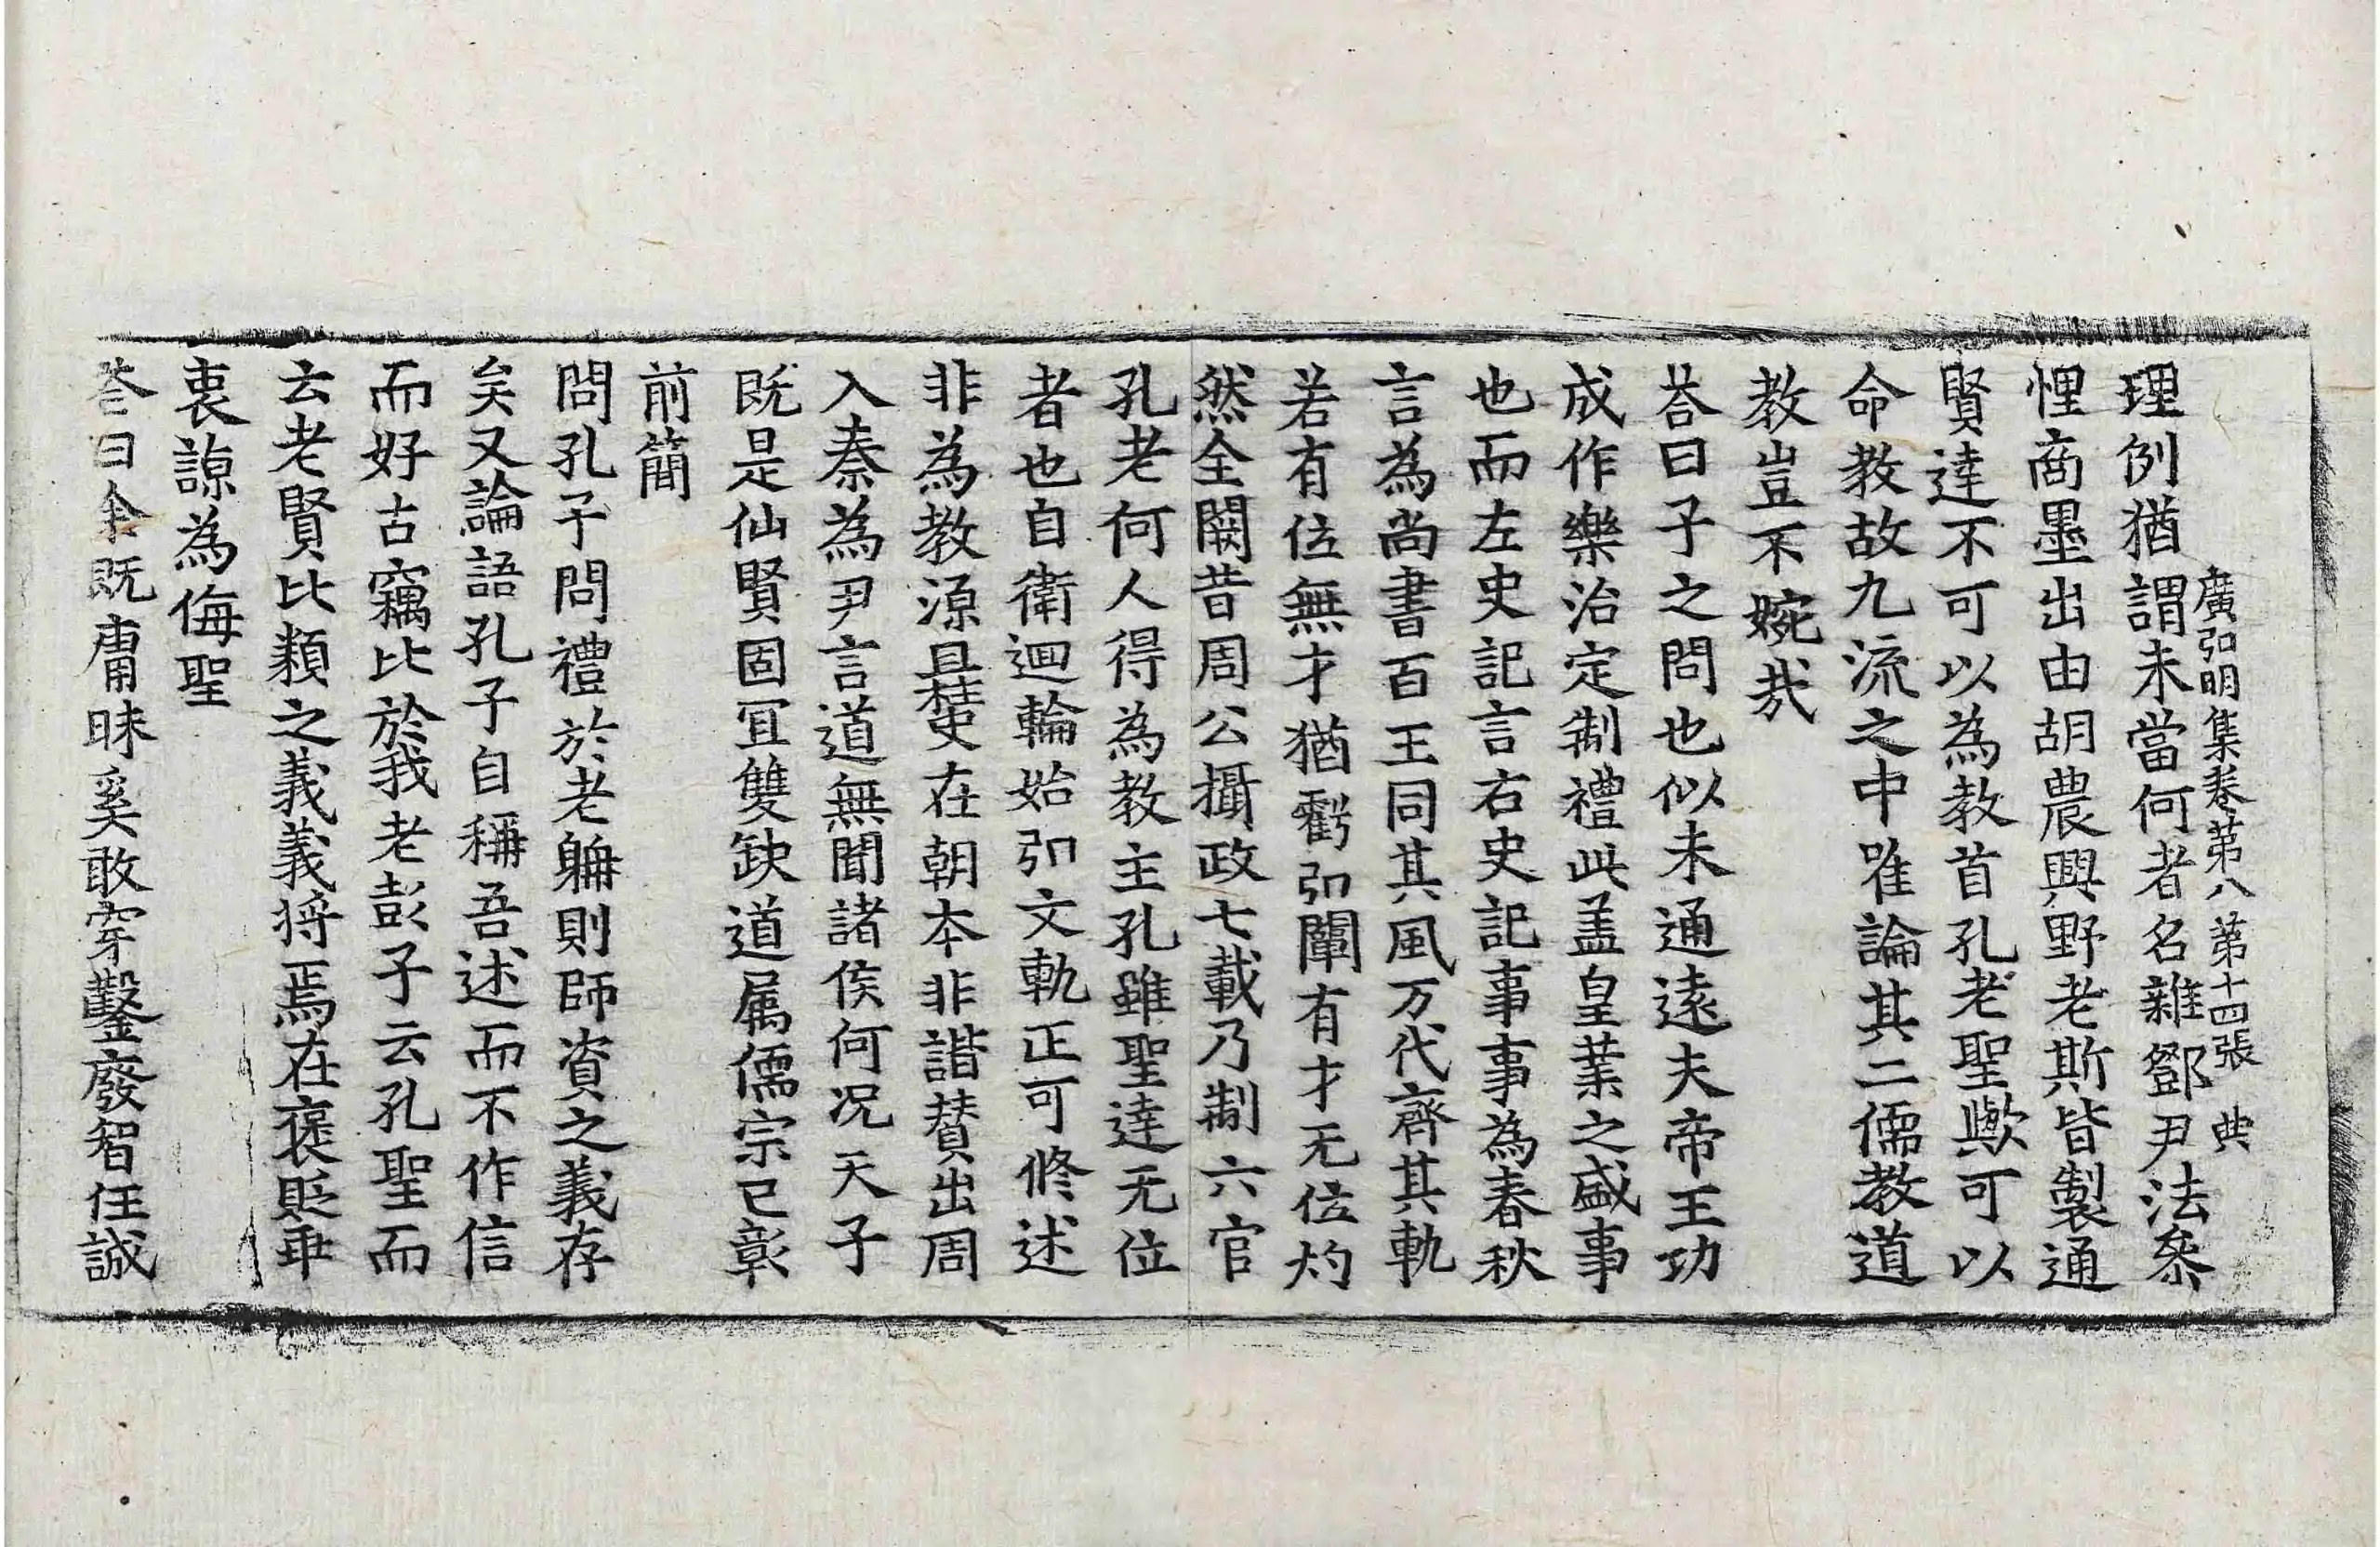 廣弘明集卷第八　第十四張　典
理例猶謂未當何者名雜鄧尹法參
悝商墨出由胡農興野老斯皆製通
賢達不可以為教首孔老聖歟可以
命教故九流之中唯論其二儒教道
教豈不婉哉
荅曰子之問也似未通遠夫帝王功
成作樂治定制禮此盖皇業之盛事
也而左史記言右史記事事為春秋
言為尚書百王同其風万代齊其軌
若有位無才猶虧弘闡有才无位灼
然全闕昔周公攝政七載乃制六官
孔老何人得為教主孔雖聖達无位
者也自衛迴輪始弘文軌正可修述
非為教源且柱史在朝本非諧賛出周
入秦為尹言道無聞諸侯何況天子
既是仙賢固冝雙缺道属儒宗已彰
前簡
問孔子問禮於老耼則師資之義存
矣又論語孔子自稱吾述而不作信
而好古竊比於我老彭子云孔聖而
云老賢比類之義義将焉在褒貶乖
衷諒為侮聖
荅曰余既庸昧奚敢穿鑿廢智任誠